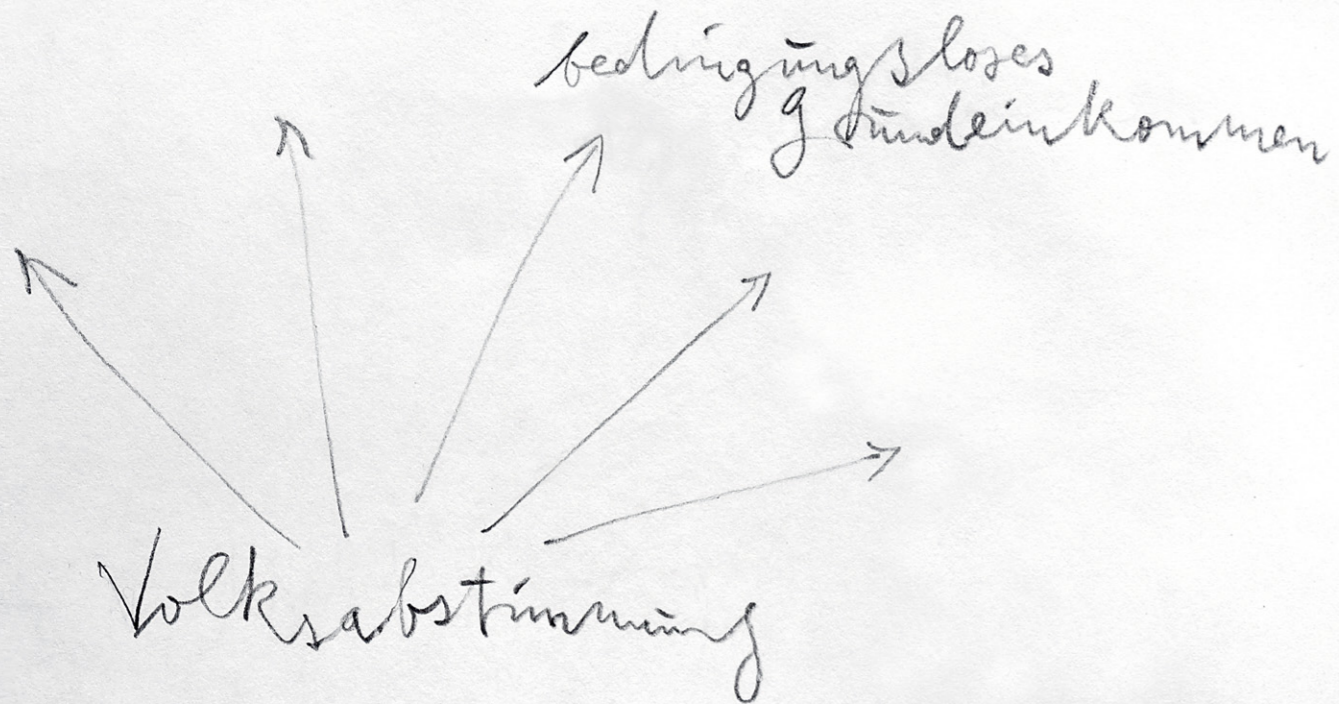 bedingungsloses
grundeinkommen
Volksabstimmung